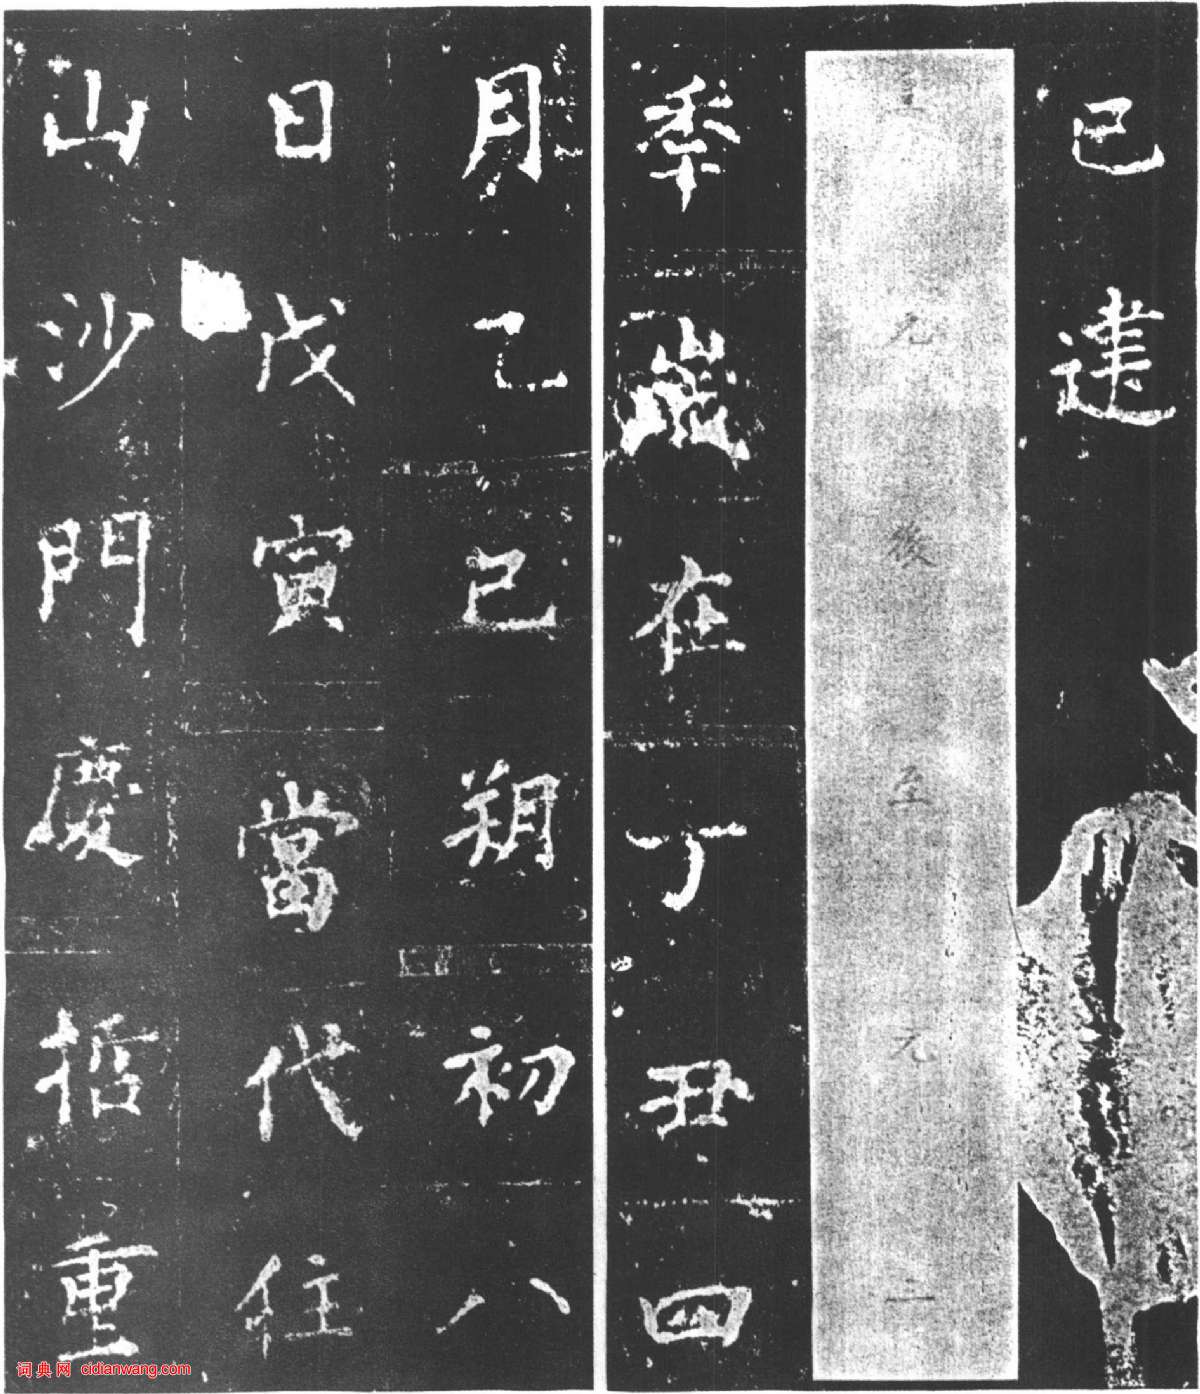 已達
後至元
秊歲在丁丑四
月乙巳朔初八
日戊寅當代住
山沙門慶哲重
词典网 cidianwang.com